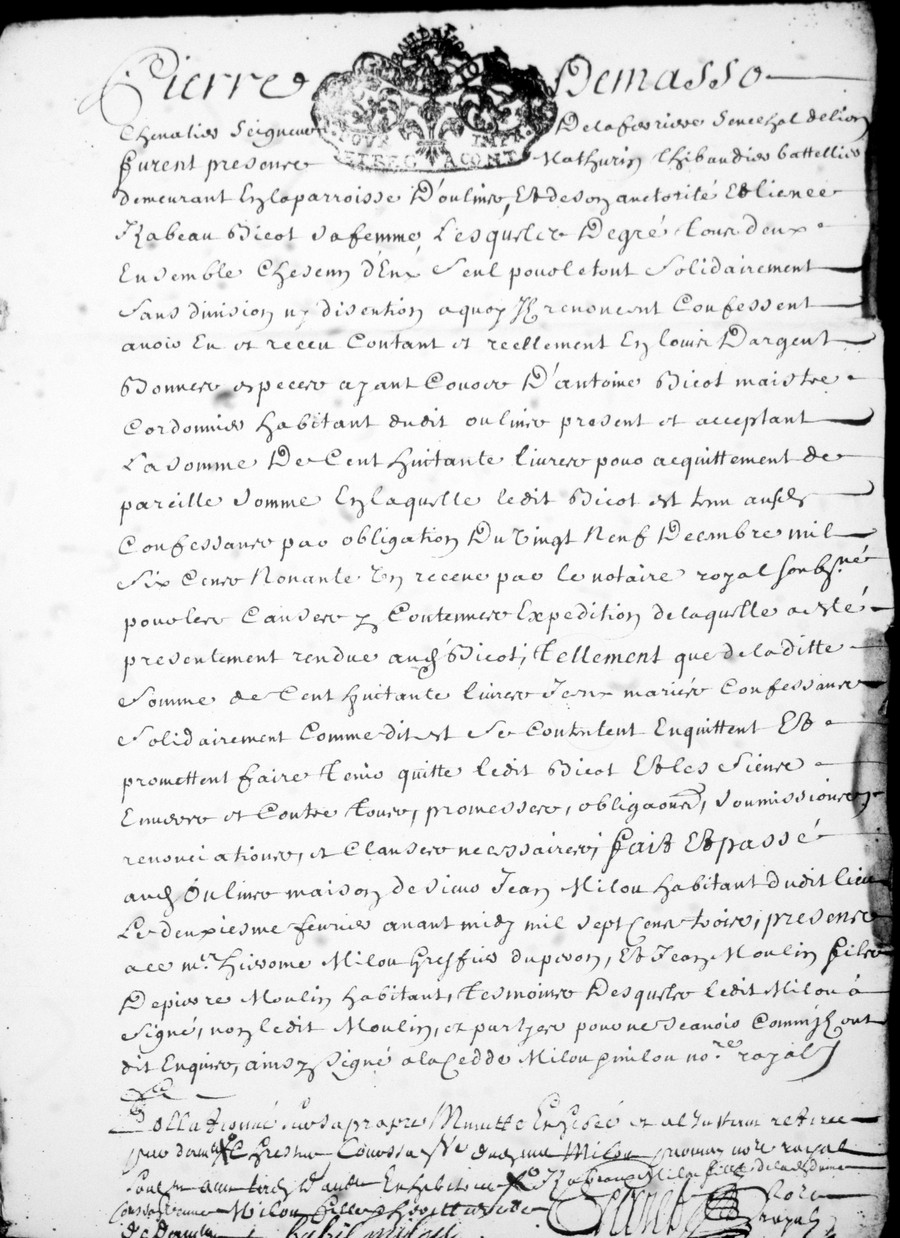 Pierre Demasso
Chevalier Seigneur De la ferriere Senechal de lion
furent presens Mathurin Thibaudier battellier
demeurant En la parroisse D'oulins, Et de son auctorité Et licence
Izabeau Bicot sa femme, Lesquels De gré tous deux
Ensemble Chescun d'Eux Seul pour le tout Solidairement
Sans division ny discution a quoy Ils renoncent Confessent
avoir Eu et receu Contant et reellement En louis D'argent
Bonnes especes ayant Cours D'antoine Bicot maistre
Cordonnier habitant dudit oulins present et acceptant
La somme De Cent huitante livres pour acquittement de
pareille somme En laquelle ledit Bicot est tenu ausds
Confessans par obligation Du Vingt Neuf Decembre mil
Six Cens Nonante Un receue par le notaire royal soubsné
pour les Causes y Contennues Expedition de laquelle a Esté
presentement rendue aud Bicot, tellement que de la ditte
Somme de Cent huitante livres Iceux mariés Confessans
Solidairement Comme dit est Se Contentent Enquittent Et
promettent faire tenir quitte ledit Bicot Et les Siens
Envers et Contre tous, promesses, obligaons, soumissions,
renonciations, et Clauses necessaires, fait Et passé
aud Oulins maison de sieur Jean Milou habitant dudit lieu
Le deuxiesme febvrier avant midy mil sept Cens trois, presens
a ce mr. Hierome Milou Greffier du peron, Et Jean Moulin fils
De pierre Moulin habitant, tesmoins Desquels ledit Milou à
Signé, non ledit Moulin, et partyes pour ne scavoir Comm Ils ont
dit Enquis, ainsy Signé a la Cedde Milou milou nore. royal
Collationné sur sa propre Minutte Exhibée et a l'instant retirée
par Milou nore royal
Milou fille de la
Milou fille
royal
milou